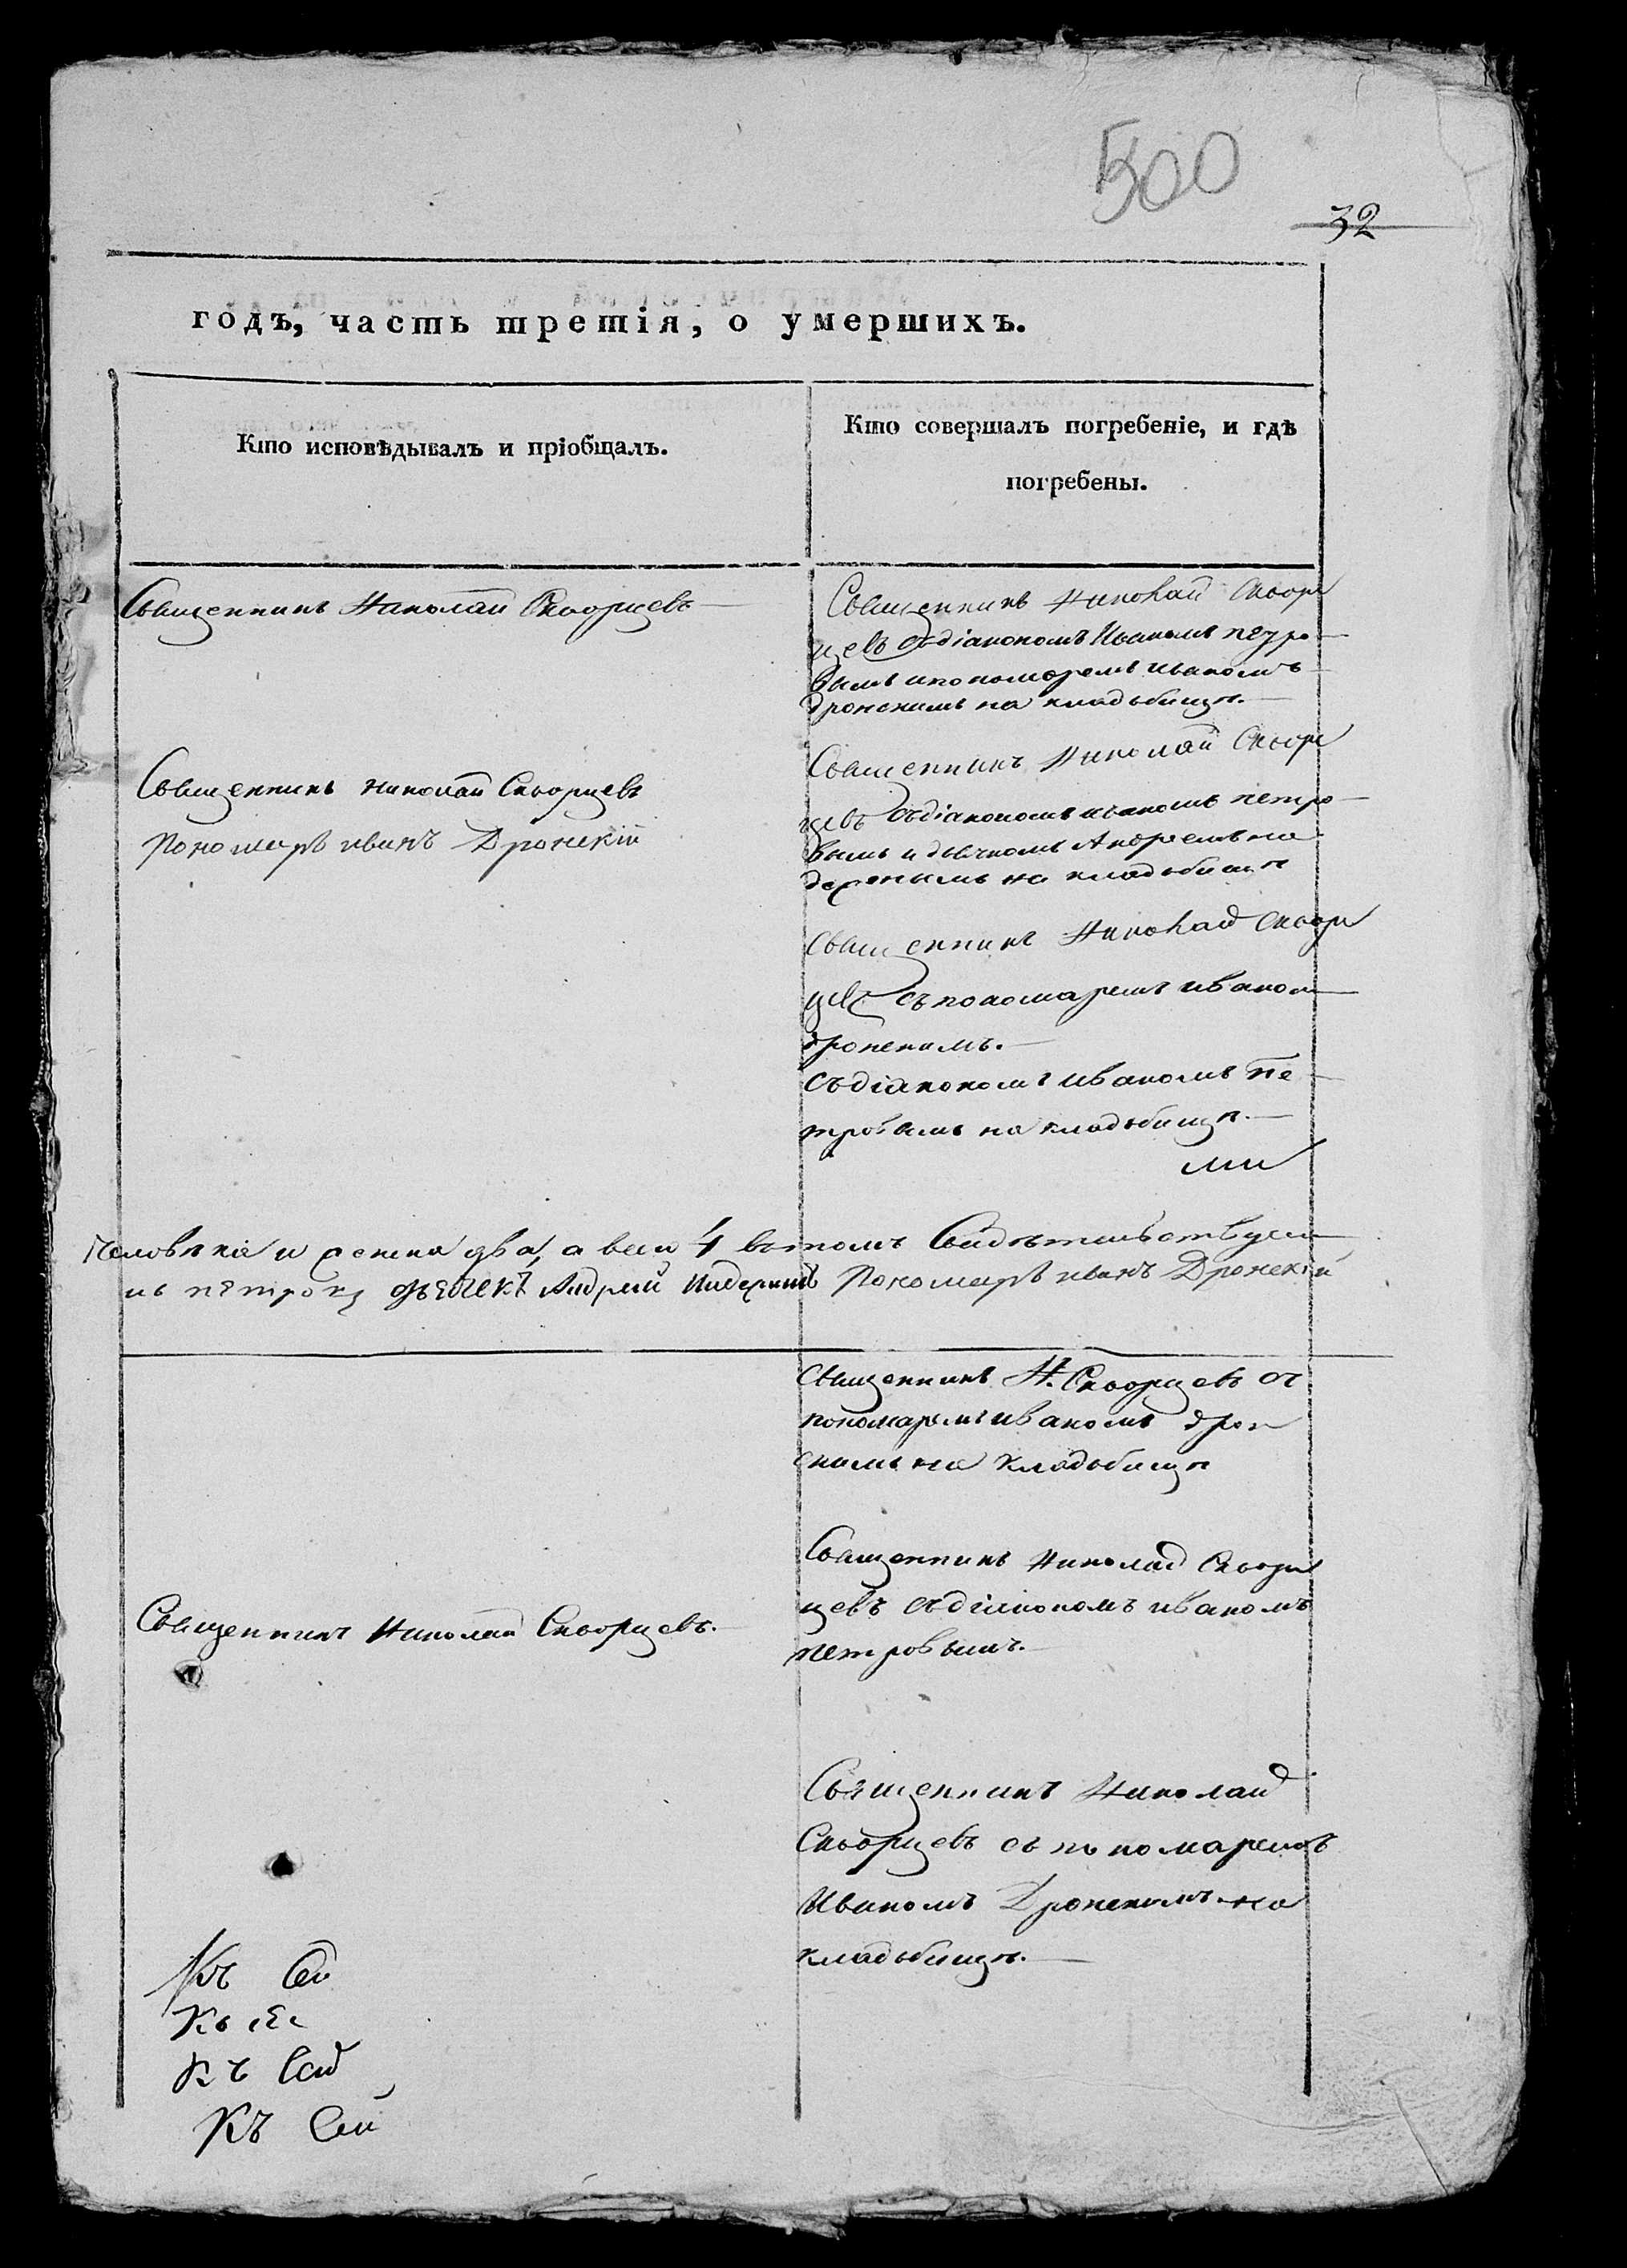 500
32
годъ, часть третія, о умершихъ.
Кто исповѣдывалъ и пріобщалъ.
Кто совершалъ погребеніе, и гдѣ
погребены.
Священникъ Николай Скворцевъ
Священникъ Николай Сквор
цевъ съ діакономъ Иваномъ петро
вымъ и пономоремъ иваномъ
дронскимъ на кладьбищѣ.
Священникъ николай Скворцевъ
Пономарь иванъ Дронскій
Священникъ Николай Сквор
цевъ съ діакономъ иваномъ петро
вымъ и дьячкомъ Андреемъ
на кладьбищѣ
Священникъ Николай Сквор
цевъ съ пономаремъ иваном
дронскимъ.
съ діакономъ иваномъ пе
тровымъ на кладьбищѣ.
ми
человѣка и два, а всего 4 въ томъ Свидѣтельствуем
дьячекъ Андрей Пономарь иванъ Дронскій
священникъ Н. Скворцевъ съ
пономаремъ иваномъ дрон
скимъ на кладьбищѣ
Священникъ Николай Скворцевъ.
Священникъ николай Сквор
цевъ съ діакономъ иваномъ
петровымъ.
Священникъ Николай
Скворцевъ съ пономаремъ
Иваномъ Дронскимъ на
кладьбищѣ.
Къ Сей
Къ
Къ Сей
Къ Сей